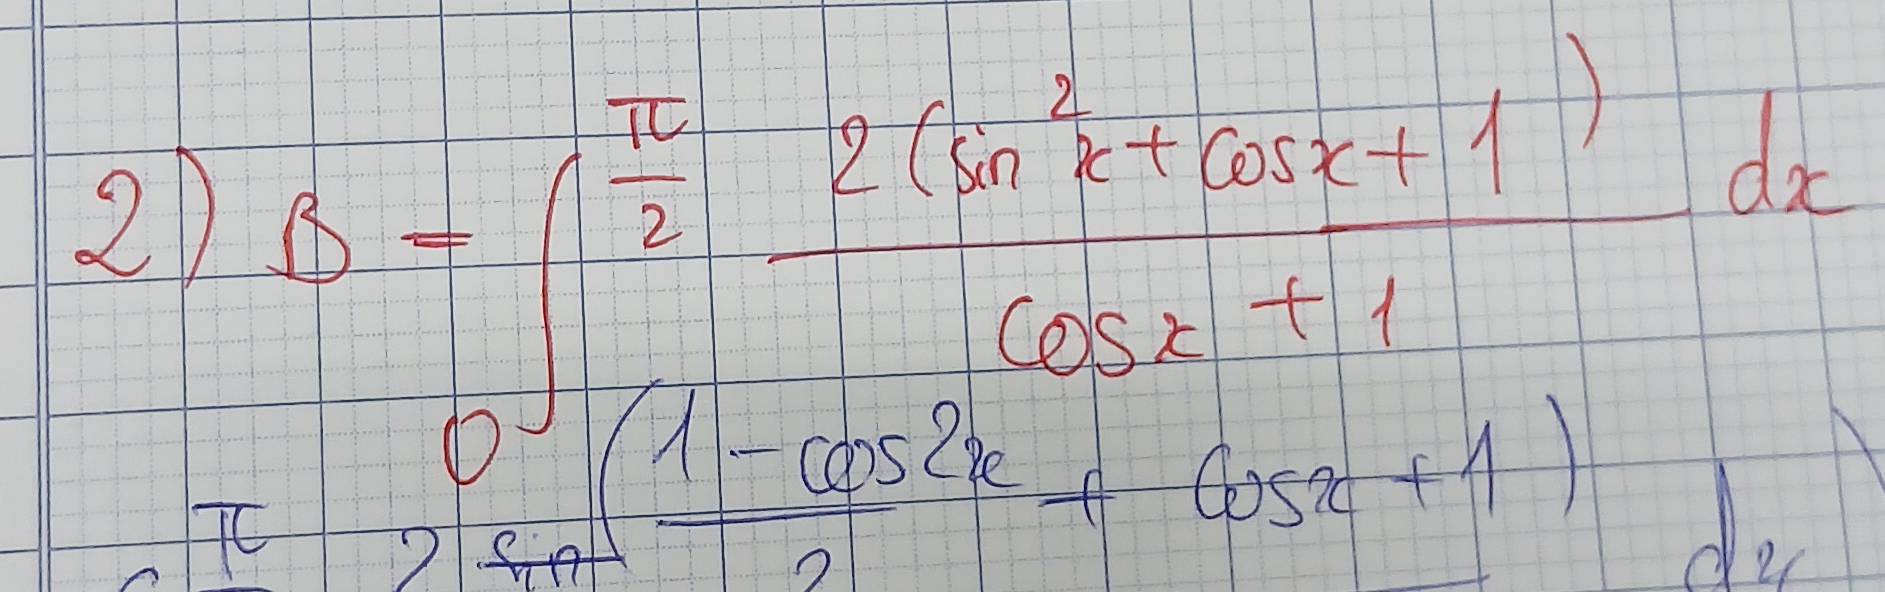 2) B = ∫₀^{π/2} \frac{2(sin²x + cosx + 1)}{cosx + 1} dx
π 2 (\frac{1 - cos2x}{2} + cosx + 1) dx